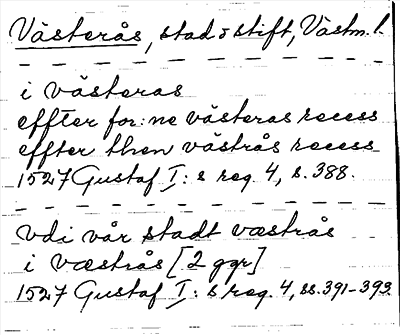 Västerås, stad o stift, Västm. l.
i västeras
effter for:ne västeras recess
effter then västrås recess
1527 Gustaf I:s reg. 4, s. 388.
vdi vår stadt væstrås
i væstrås [2 ggr]
1527 Gustaf I:s reg. 4, ss. 391-393